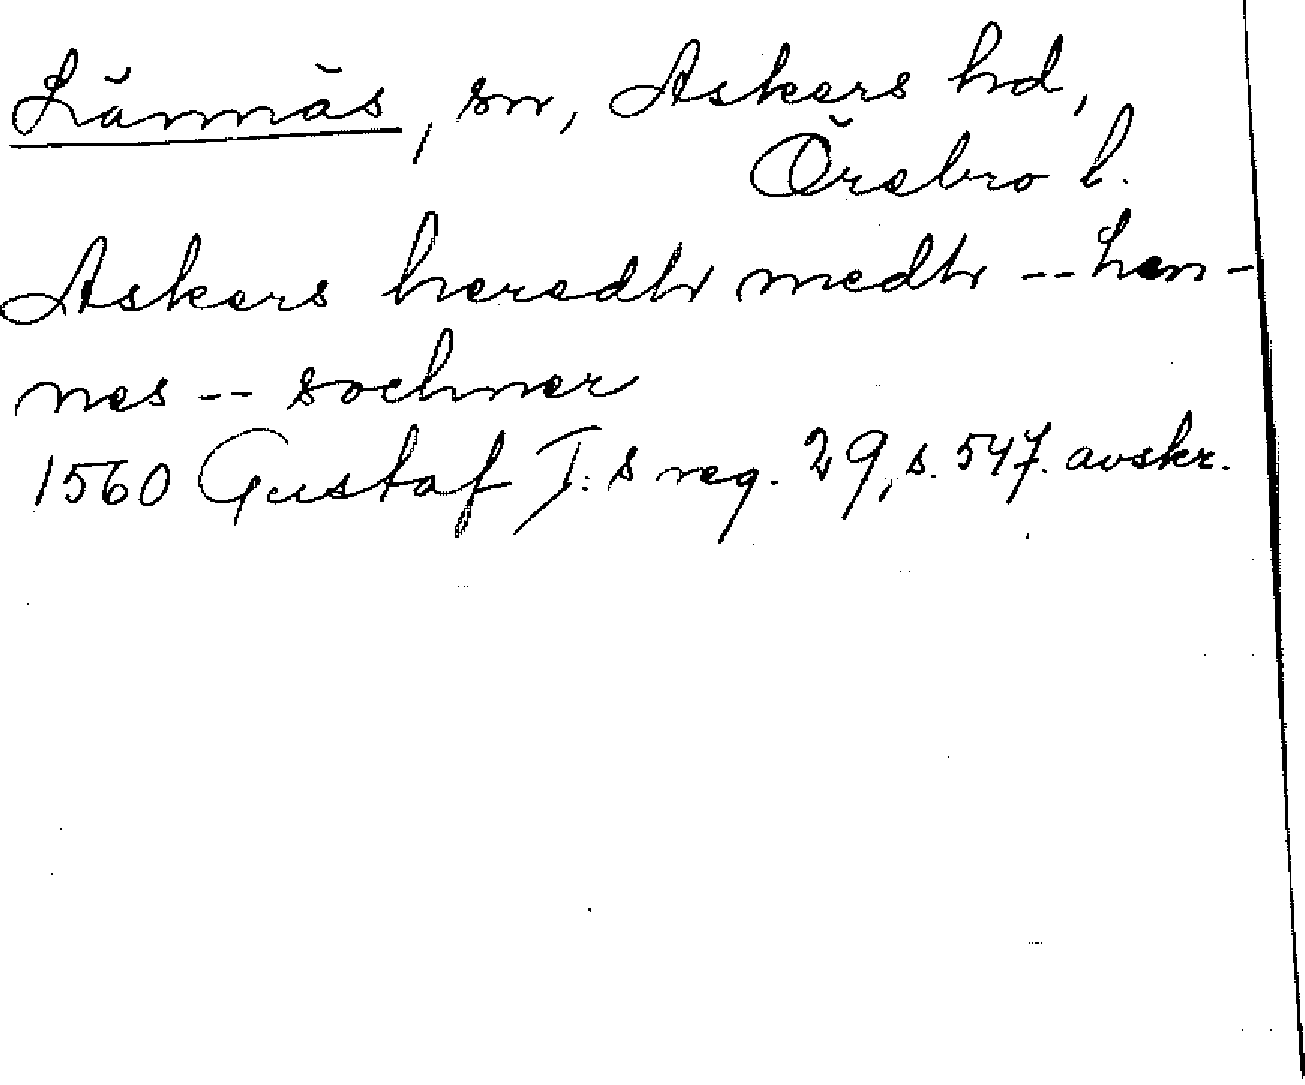 Lännäs, sn, Askers hd,
Örebro l.
Askers heredh medh -- Len-
nes -- sochner
1560 Gustaf I:s reg. 29, s. 547. avskr.